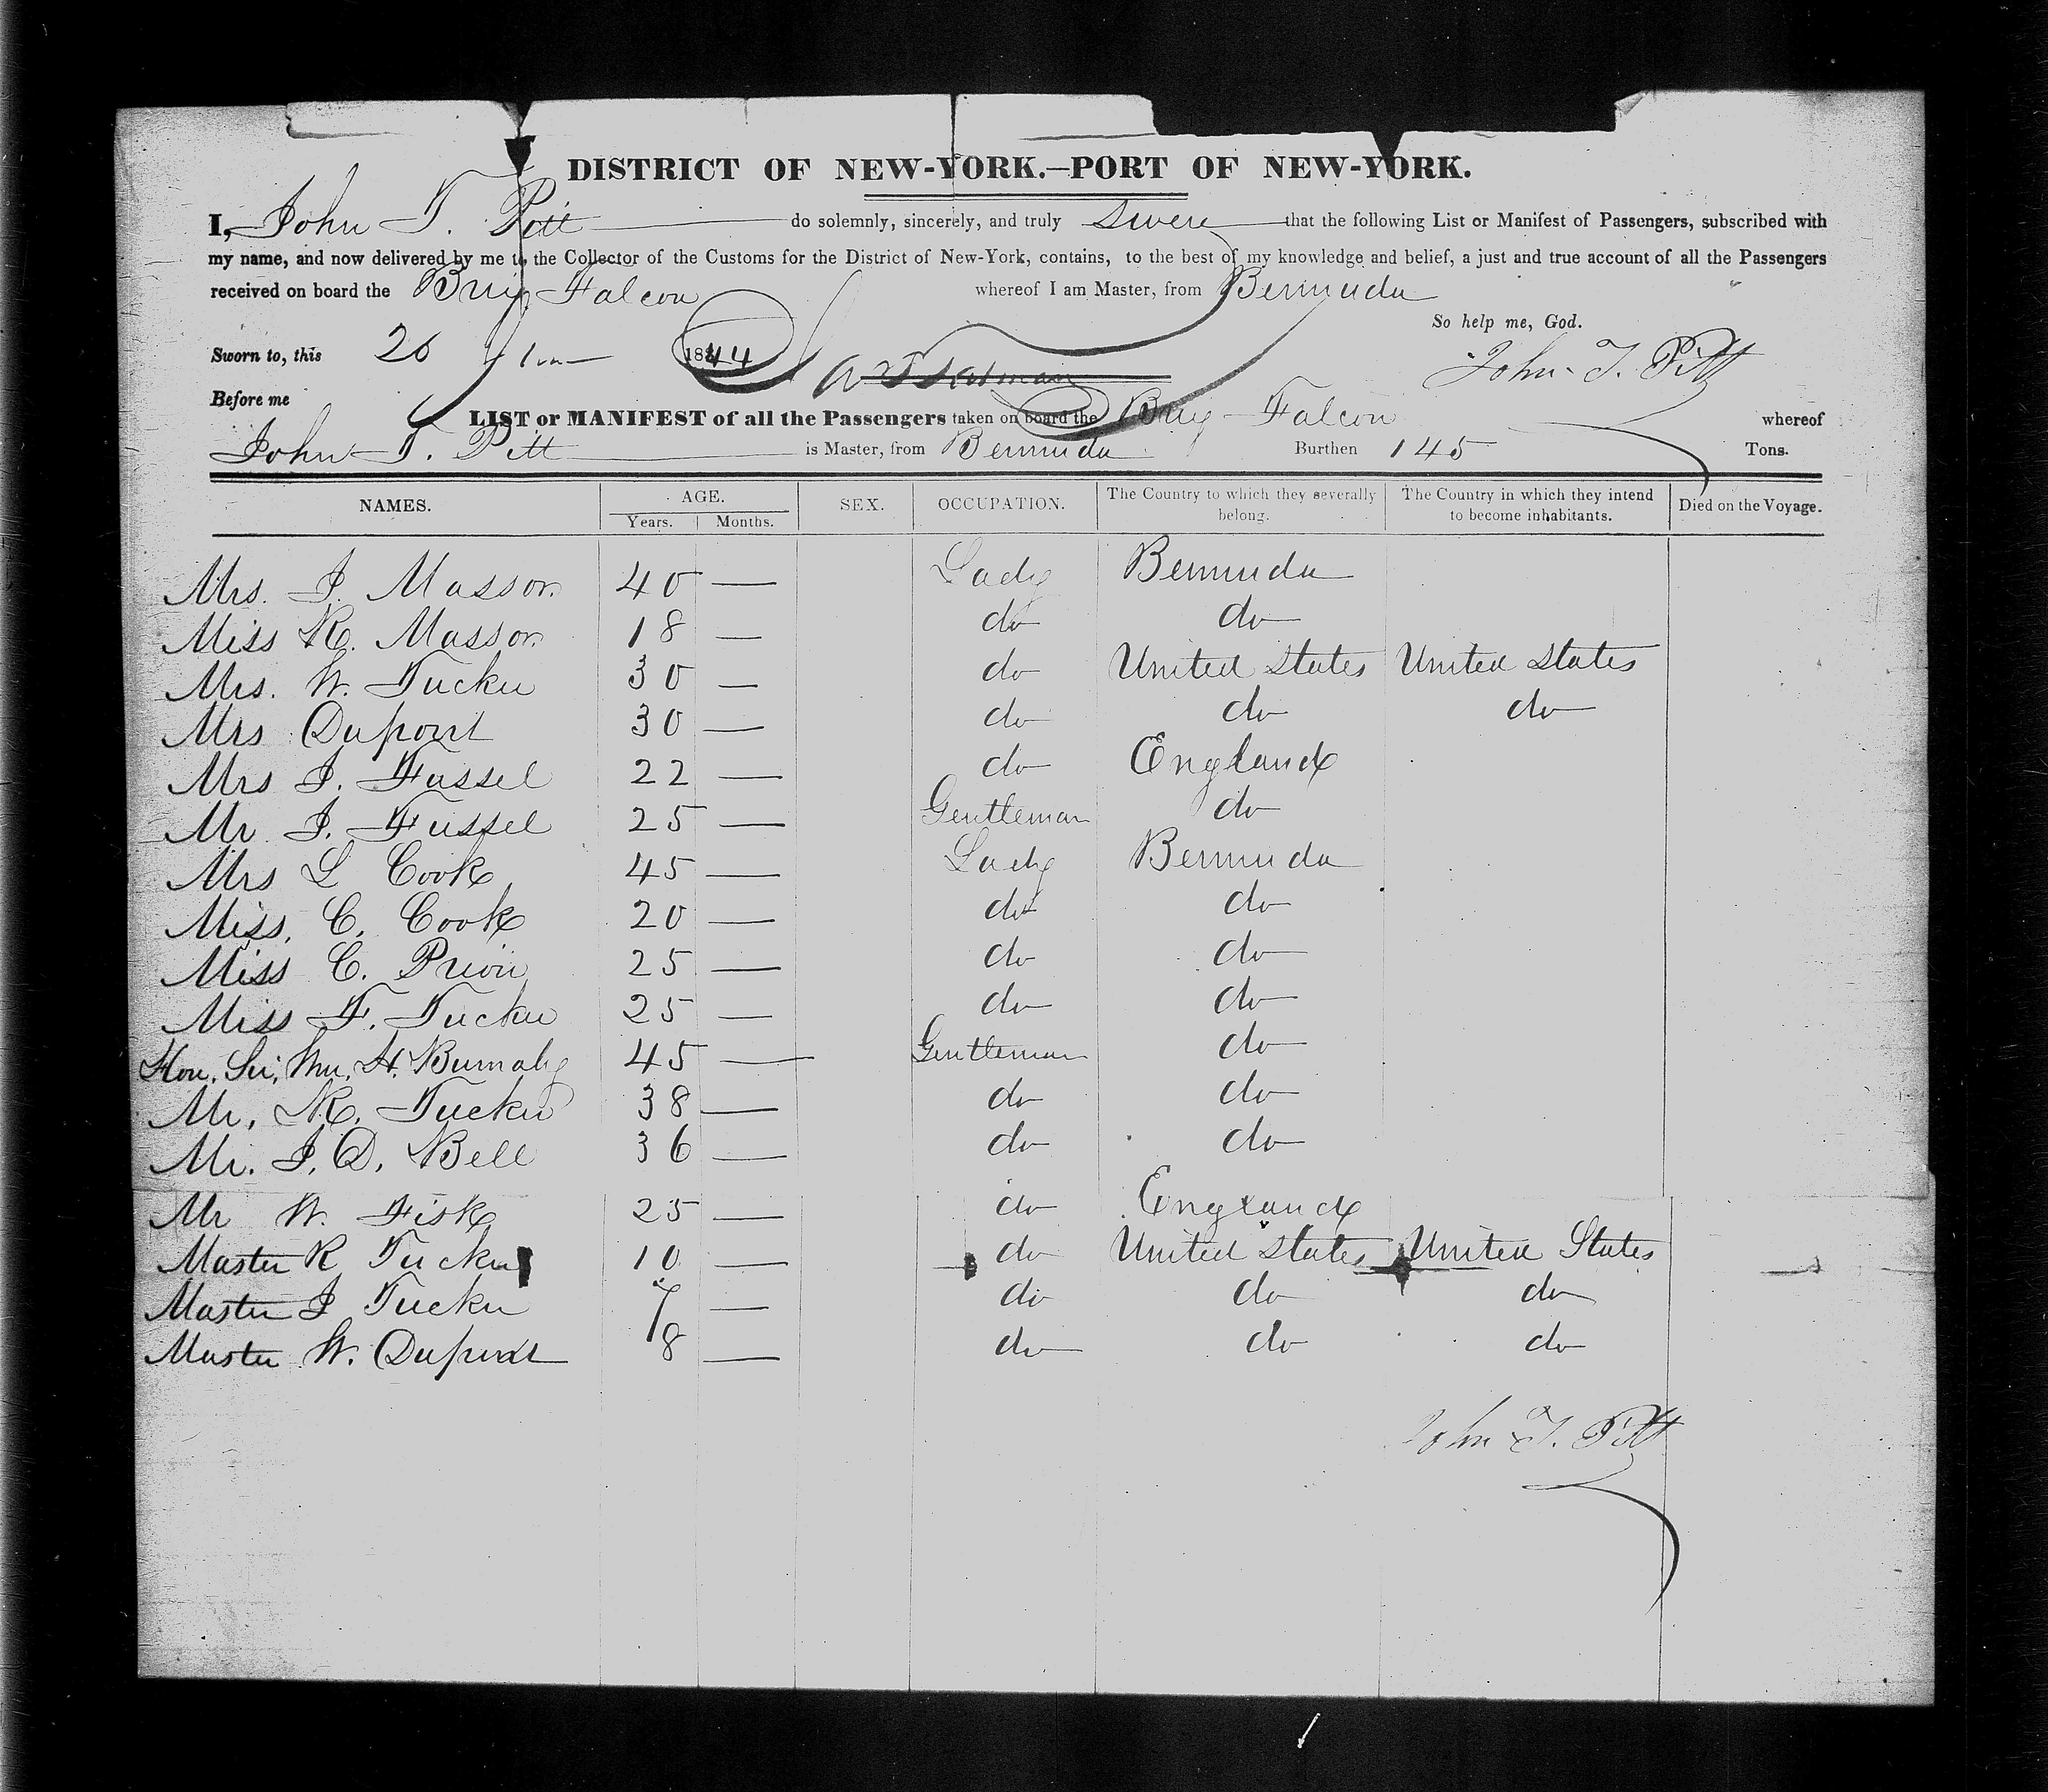 DISTRICT OF NEW-YORK.—PORT OF NEW-YORK.
I, John T. Pitt do solemnly, sincerely, and truly swere that the following List or Manifest of Passengers, subscribed with
my name, and now delivered by me to the Collector of the Customs for the District of New-York, contains, to the best of my knowledge and belief, a just and true account of all the Passengers
received on board the Brig Falcon whereof I am Master, from Bermuda
So help me, God.
Sworn to, this 26 1844 John T. Pitt
Before me
LIST or MANIFEST of all the Passengers taken on board the Brig Falcon whereof
John T. Pitt is Master, from Bermuda Burthen 145 Tons.
NAMES. AGE. SEX. OCCUPATION. The Country to which they severally belong. The Country in which they intend to become inhabitants. Died on the Voyage.
Years. Months.
Mrs. J. Masson 40 — Lady Bermuda
Miss R. Masson 18 — do do
Mrs. W. Tucker 30 — do United States United States
Mrs Dupont 30 — do do do
Mrs J. Fussel 22 — do England
Mr J. Fussel 25 — Gentleman do
Mrs L Cook 45 — Lady Bermuda
Miss. C. Cook 20 — do do
Miss C. 25 — do do
Miss F. Tucker 25 — do do
Hon. Sir, Wm. H. Burnaby 45 — Gentleman do
Mr. R. Tucker 38 — do do
Mr. J. D. Bell 36 — do do
Mr W. Fisk 25 — do England
Master R Tucker 10 — do United States United States
Master J Tucker 7 — do do do
Master W. Dupont 8 — do do do
John T. Pitt